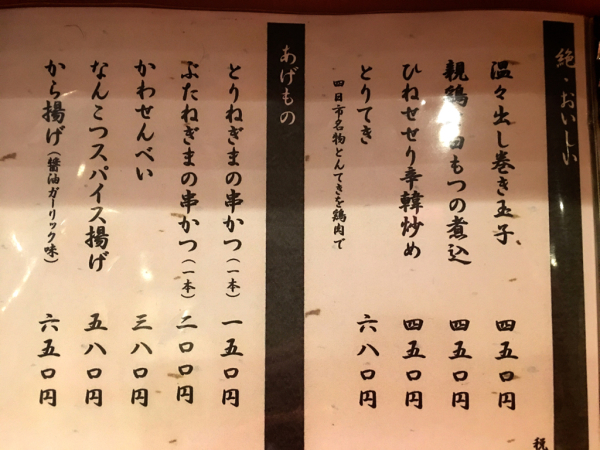 絶・おいしい
温々出し巻き玉子、 四五〇円
親鶏 もつの煮込 四五〇円
ひねせせり辛韓炒め 四五〇円
とりてき 六八〇円
四日市名物とんてきを鶏肉で
あげもの
とりねぎまの串かつ(一本) 一五〇円
ぶたねぎまの串かつ(一本) 二〇〇円
かわせんべい 三八〇円
なんこつスパイス揚げ 五八〇円
から揚げ(醤油ガーリック味) 六五〇円
税